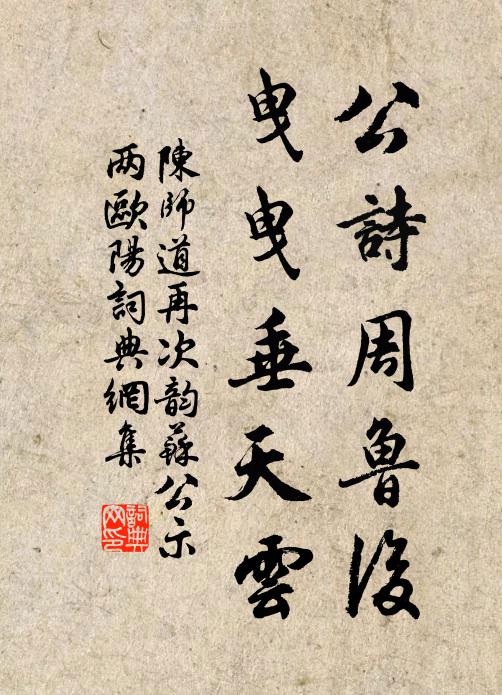 公詩周魯後
曳曳垂天雲
陳師道再次韵蘇公示
两歐陽詞典網集